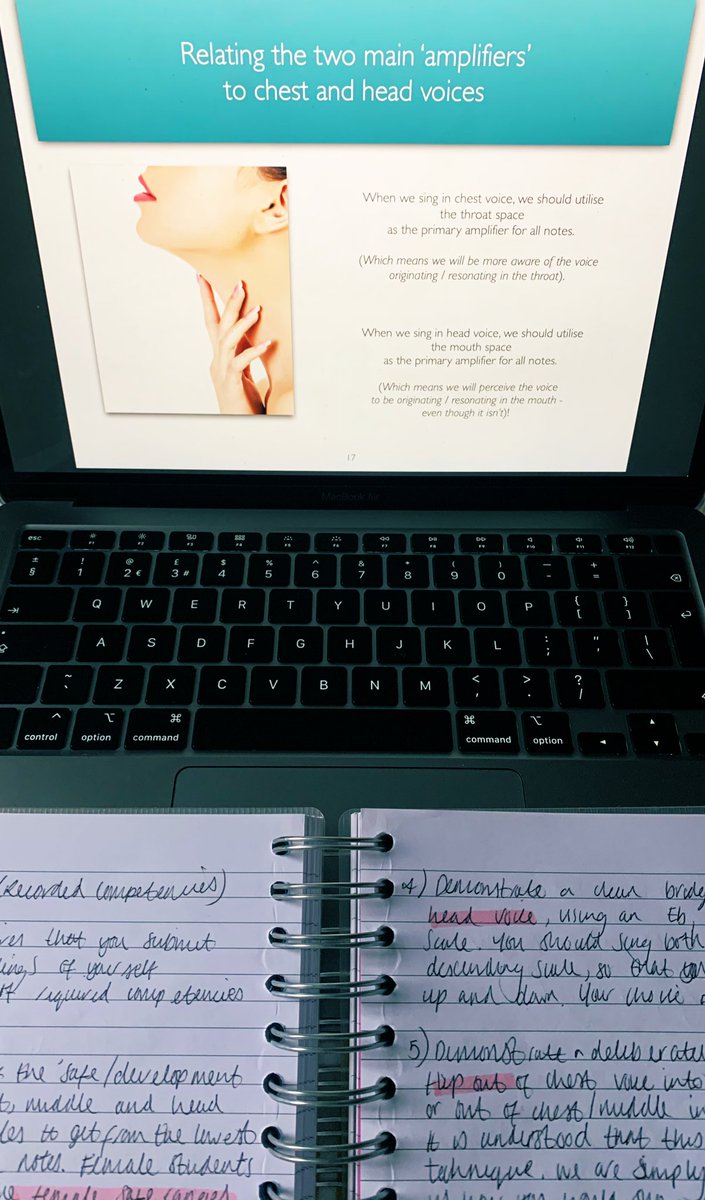 Relating the two main ‘amplifiers’
to chest and head voices
When we sing in chest voice, we should utilise
the throat space
as the primary amplifier for all notes.
(Which means we will be more aware of the voice
originating / resonating in the throat).
When we sing in head voice, we should utilise
the mouth space
as the primary amplifier for all notes.
(Which means we will perceive the voice
to be originating / resonating in the mouth -
even though it isn't)!
17
MacBook Air
esc F1 F2 F3 F4 F5 F6 F7 F8 F9 F10 F11 F12
± § ! 1 @ 2 € £ 3 # $ 4 % 5 ^ 6 & 7 * 8 ( 9 ) 0 — - + =
Q W E R T Y U I O P { [ } ]
A S D F G H J K L : ; " ' | \
~ ` Z X C V B N M < , > . ? /
control option command command option
(Recorded competencies)
that you submit
of yourself
required competencies
the 'safe/development
middle and head
to get from the lowest
notes. Female students
female safe ranges
4) Demonstrate a clean
head voice, using an Eb
scale. You should sing both
descending scale, so that
up and down. Your choice
5) Demonstrate a deliberate
flip out of chest voice into
or out of chest/middle
It is understood that this
technique, we are simply